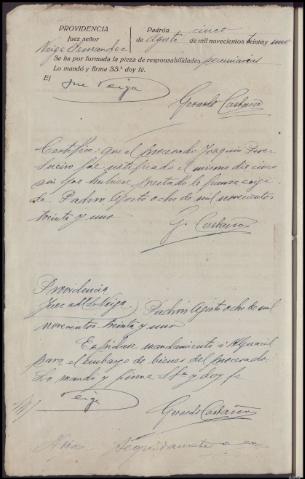 PROVIDENCIA
Juez señor
Veiga Fernandez
Padrón cinco
de Agosto de mil novecientos treinta y uno
Se ha por formada la pieza de responsabilidades pecuniarias
Lo mandó y firma SS.ª doy fe.
El José Veiga
Gerardo Castaño
Certifico: que el procesado Joaquin
fué notificado el mismo dia cinco
sin que hubiese prestado la fianza exigi-
da. Padrón Agosto ocho de mil novecientos
treinta y uno
G. Castaño
Providencia
Juez Veiga Padrón Agosto ocho de mil
novecientos treinta y uno
Expidase mandamiento á Alguacil
para el embargo de bienes del procesado.
Lo mandó y firma S Sª doy fe
Veiga
Gerardo Castaño
Nota Seguidamente se